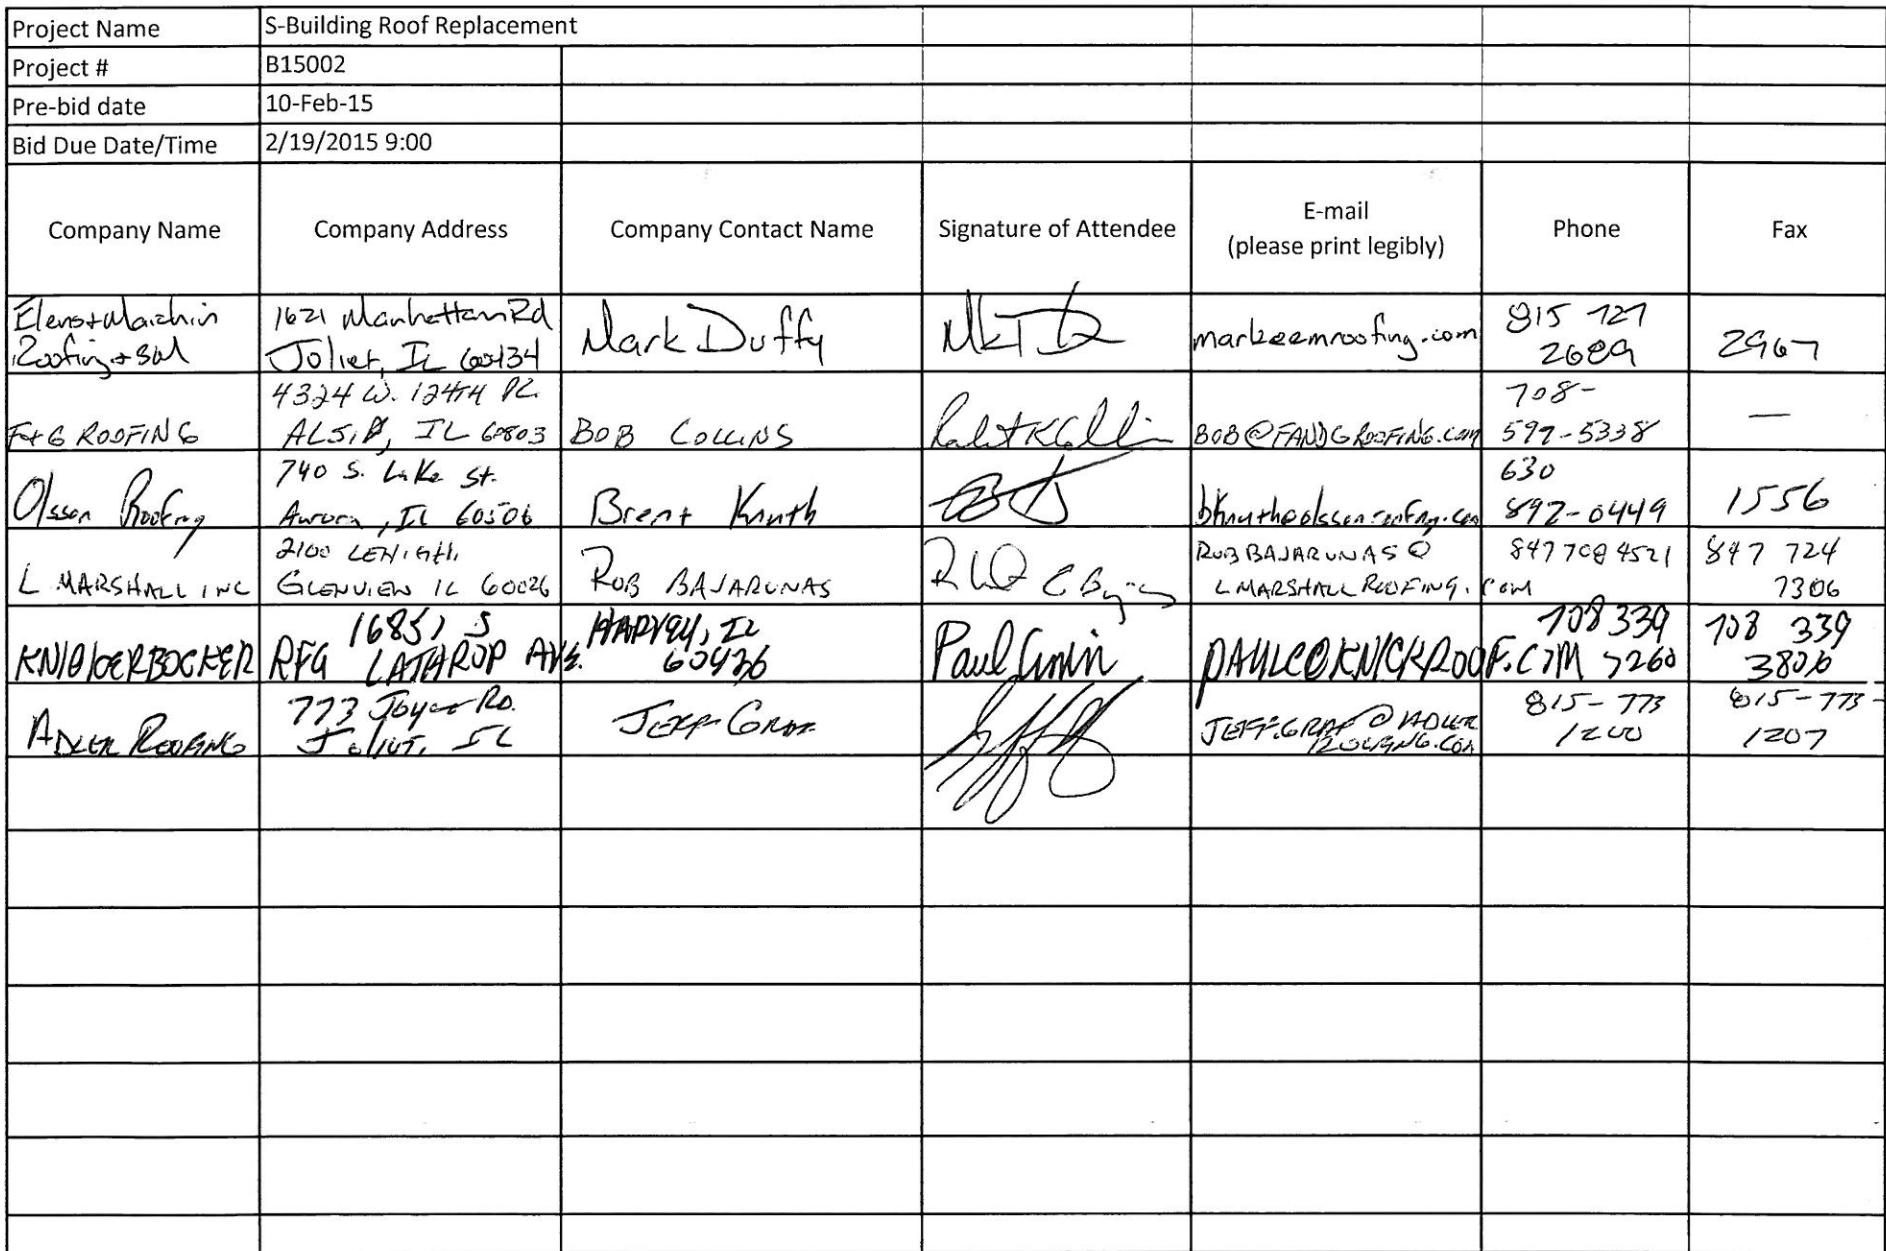 Project Name S-Building Roof Replacement
Project # B15002
Pre-bid date 10-Feb-15
Bid Due Date/Time 2/19/2015 9:00
Company Name Company Address Company Contact Name Signature of Attendee E-mail (please print legibly) Phone Fax
Elens+Maichin
Roofing+SM
1621 Manhattan Rd
Joliet, IL
Mark Duffy
815 727
2689
2967
F+G ROOFING
4324 W. 124TH PL.
ALSIP, IL 60803
BOB COLLINS
BOB@FANDGROOFING.COM
708-
597-5338
—
Olsson Roofing
740 S. Lake St.
Aurora, IL 60506
Brent Knuth
630
892-0449
1556
L MARSHALL INC
2100 LEHIGH.
GLENVIEW IL 60026
ROB BAJARUNAS
ROBBAJARUNAS@
LMARSHALLROOFING.COM
847 708 4521
847 724
7306
KNICKERBOCKER RFG
16851 S
LATHROP AVE.
HARVEY, IL
60426
Paul
PAULC@KNICKROOF.COM
708 339
7260
708 339
ADLER ROOFING
773 Joyce RD.
Joliet, IL
JEFF GRAF
JEFF.GRAF@ADLER
ROOFING.COM
815-773
1200
815-773-
1207